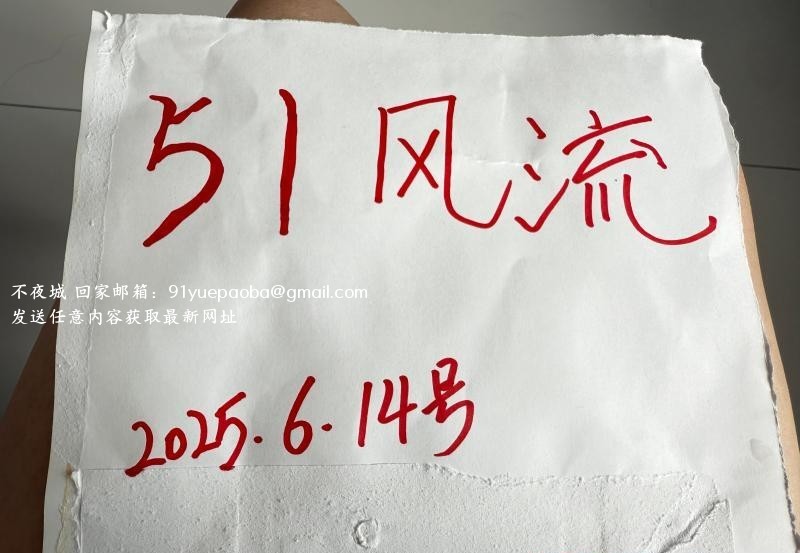 51风流
不夜城 回家邮箱：91yuepaoba@gmail.com
发送任意内容获取最新网址
2025.6.14号